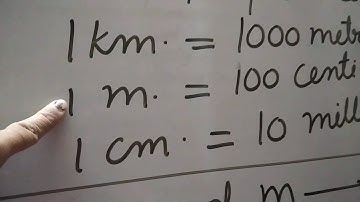 1 km. = 1000 metr
1 m. = 100 centi
1 cm. = 10 mill
m